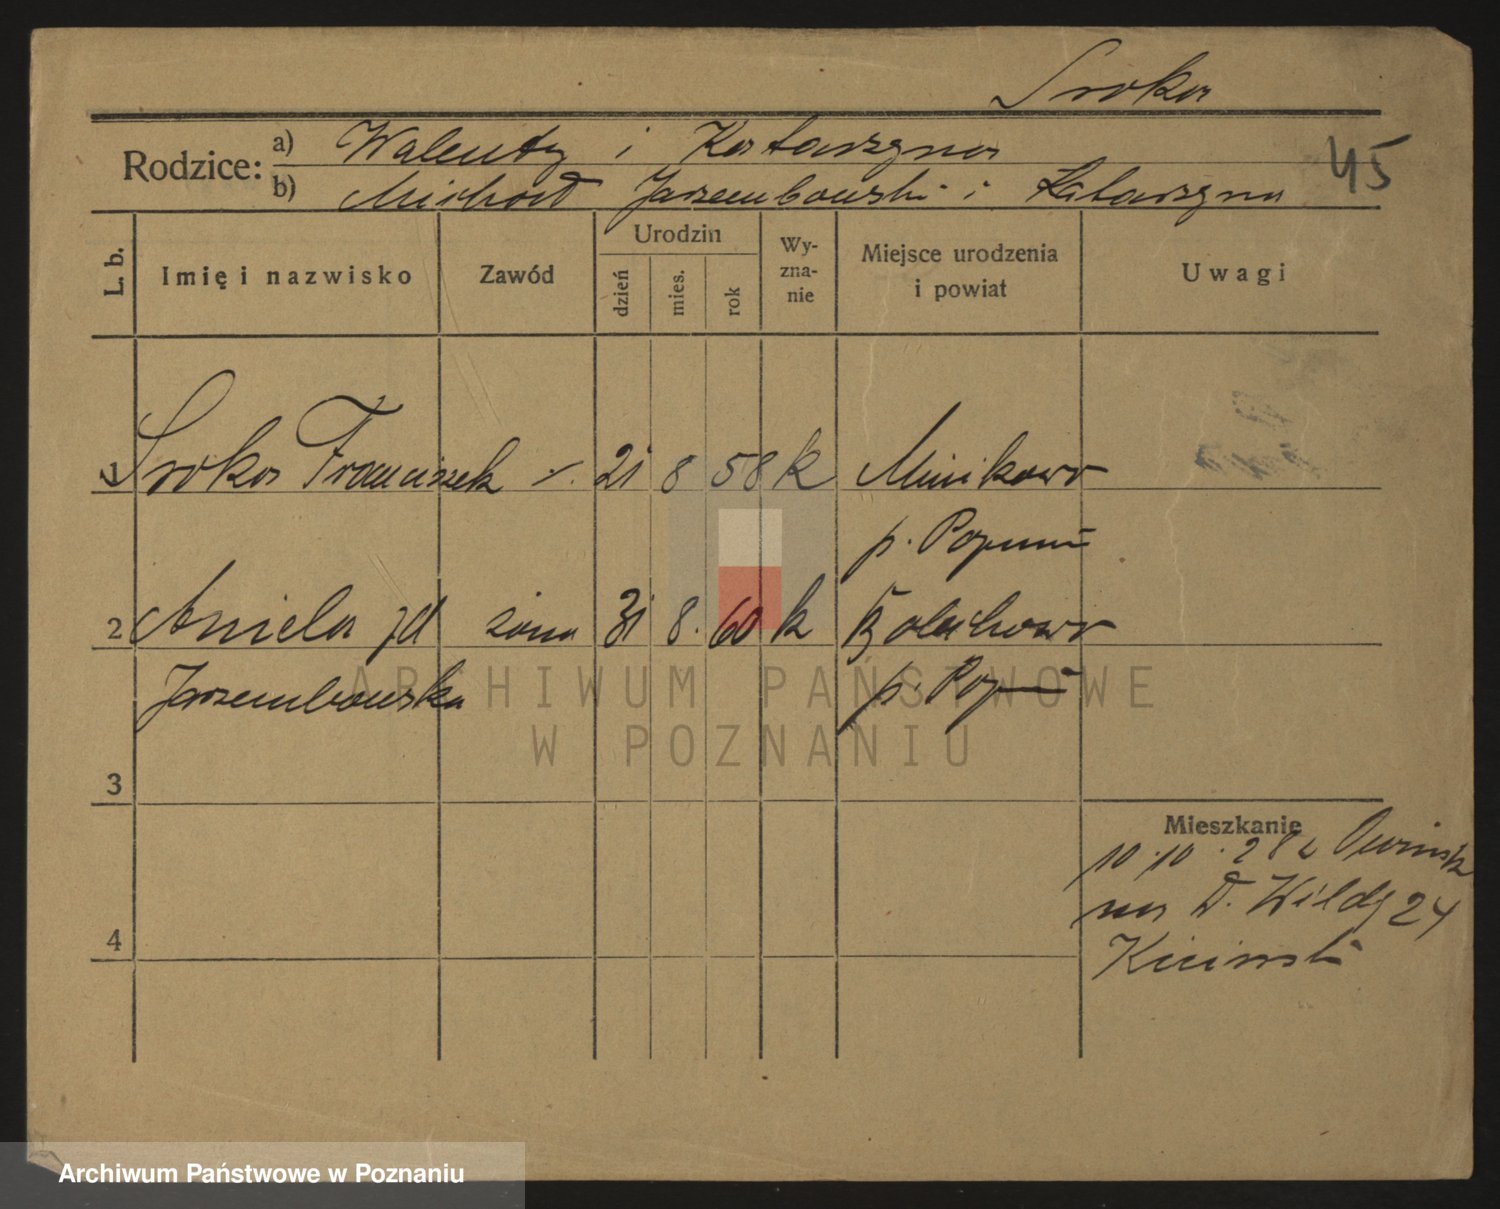 Sroka
Rodzice: a) Walenty i Katarzyna
45
b) Michał Jarzembowski i Katarzyna
L. b. Imię i nazwisko Zawód Urodzin dzień mies. rok Wy-zna-nie Miejsce urodzenia i powiat Uwagi
1 Sroka Franciszek 21 8 58 k Minikowo
p. Poznań
2 Aniela zd żona 31 8. 60 k
Jarzembowska p. Pozn
3
Mieszkanie
10.10.28 z Owinsk
na D. Wildę 24
4
ARCHIWUM PAŃSTWOWE
W POZNANIU
Archiwum Państwowe w Poznaniu